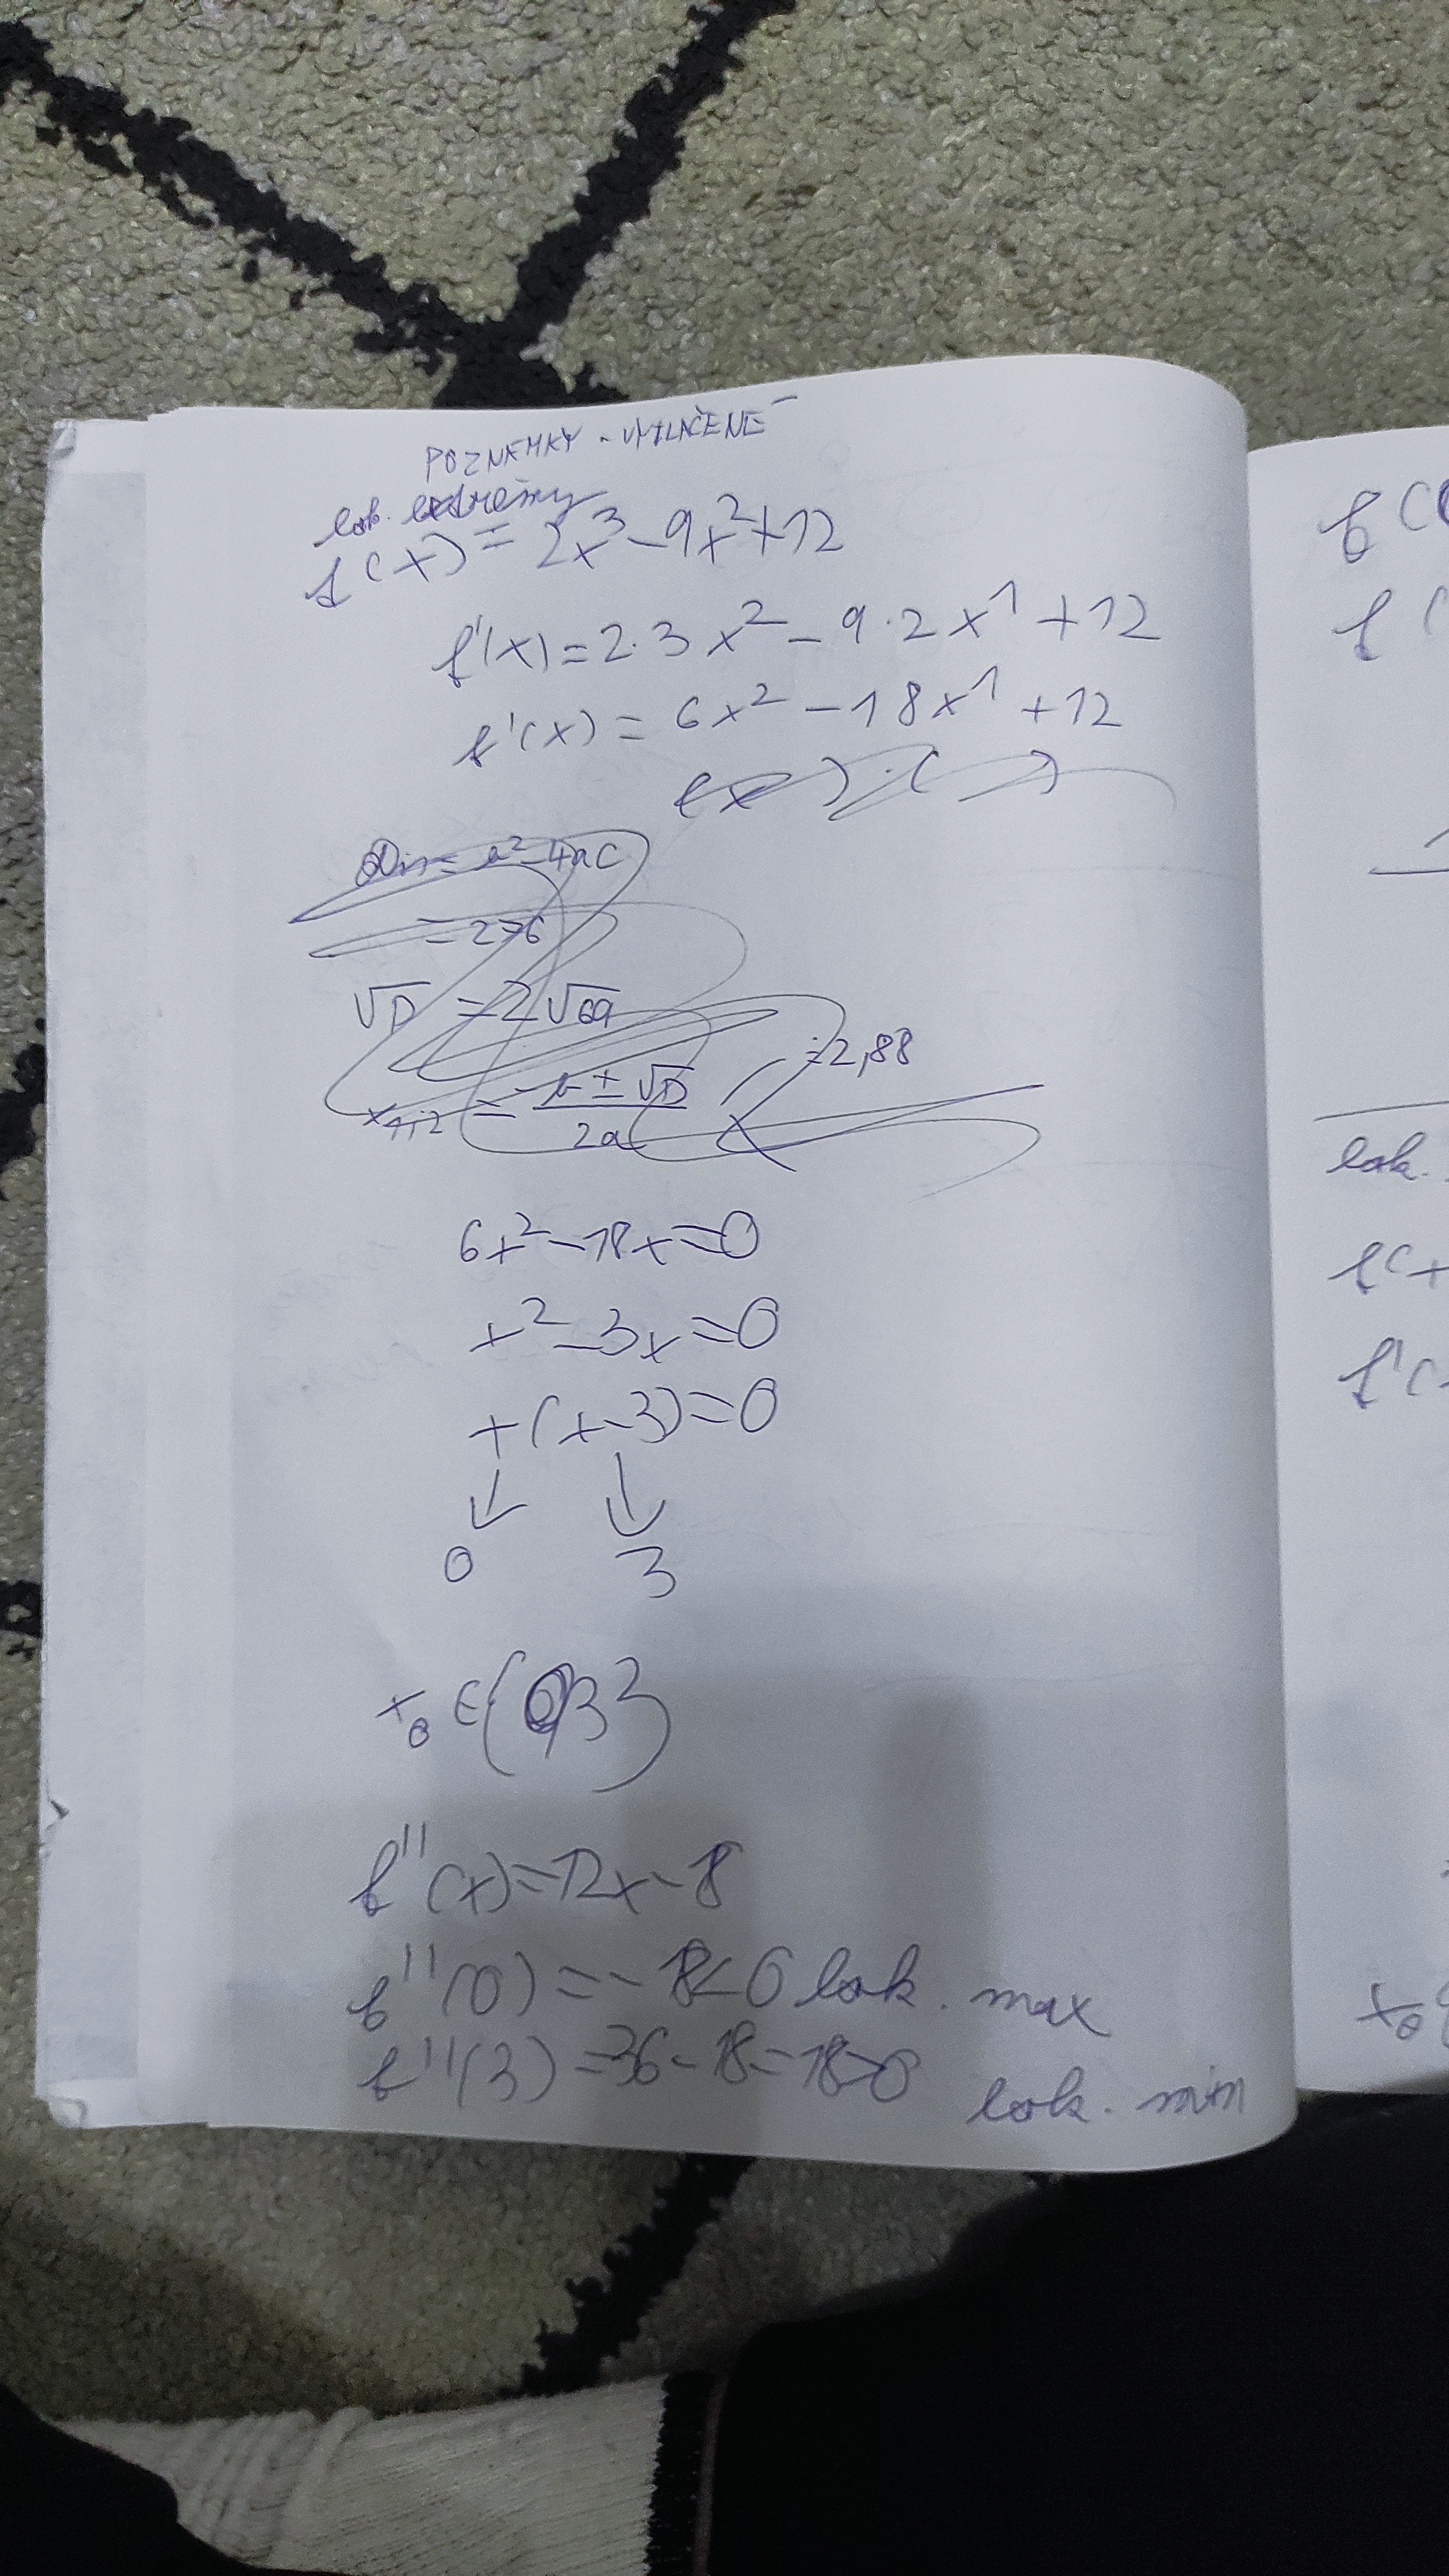 POZNÁMKY - VYTLAČENÉ
lok. extrémy
f(x) = 2x³ - 9x² + 12
f'(x) = 2·3x² - 9·2x¹ + 12
f'(x) = 6x² - 18x¹ + 12
(x ) · ( )
Dis = b² - 4ac
= 276
√D = 2√69
x₁,₂ = -b ± √D / 2a = 2,88
6x² - 18x = 0
x² - 3x = 0
x(x-3) = 0
0 3
x₀ ∈ {0,3}
f''(x) = 12x - 18
f''(0) = -18 < 0 lok. max
f''(3) = 36 - 18 = 18 > 0 lok. min
f(
f(
1
lok.
f(x
f'(
x₀